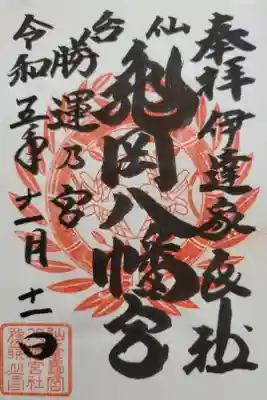 奉拝 伊達家氏社
仙台
亀岡八幡宮
勝運乃宮
令和五年十一月十一日